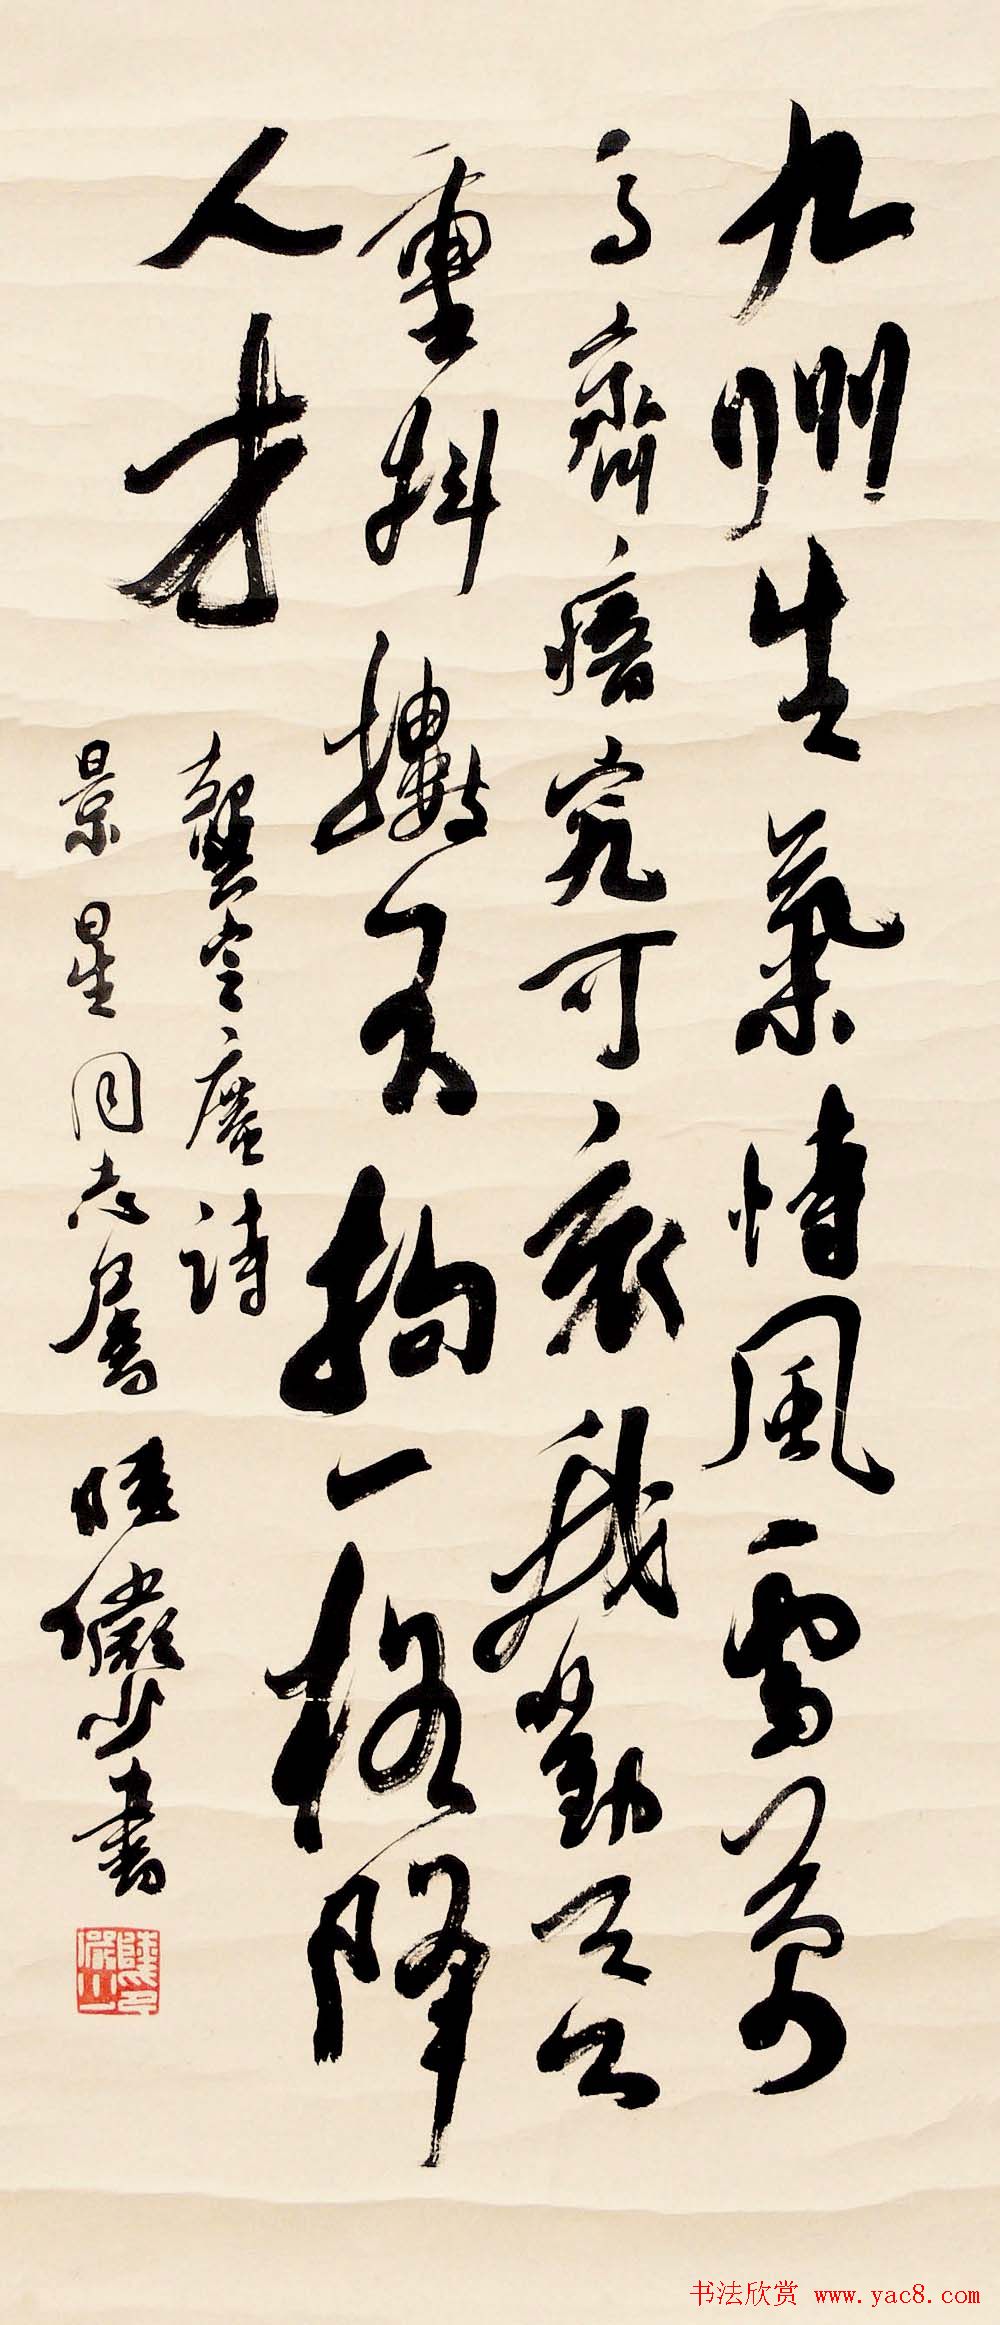 九州生氣恃風雷萬
馬齊瘖究可哀我勸天公
重抖擻不拘一格降
人才
龔定庵詩
景星同志屬 陸儼少書
陸儼少
书法欣赏 www.yac8.com